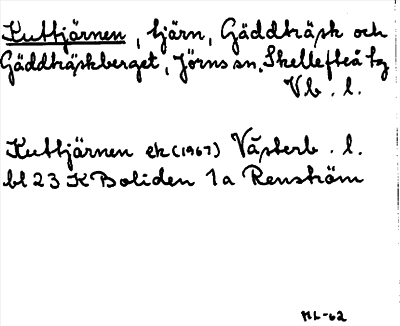 Kuttjärnen, tjärn, Gäddträsk och
Gäddträskberget, Jörns sn, Skellefteå tg
Vb. l.
Kuttjärnen ek (1967) Västerb. l.
bl 23 K Boliden 1a Renström
ML-62